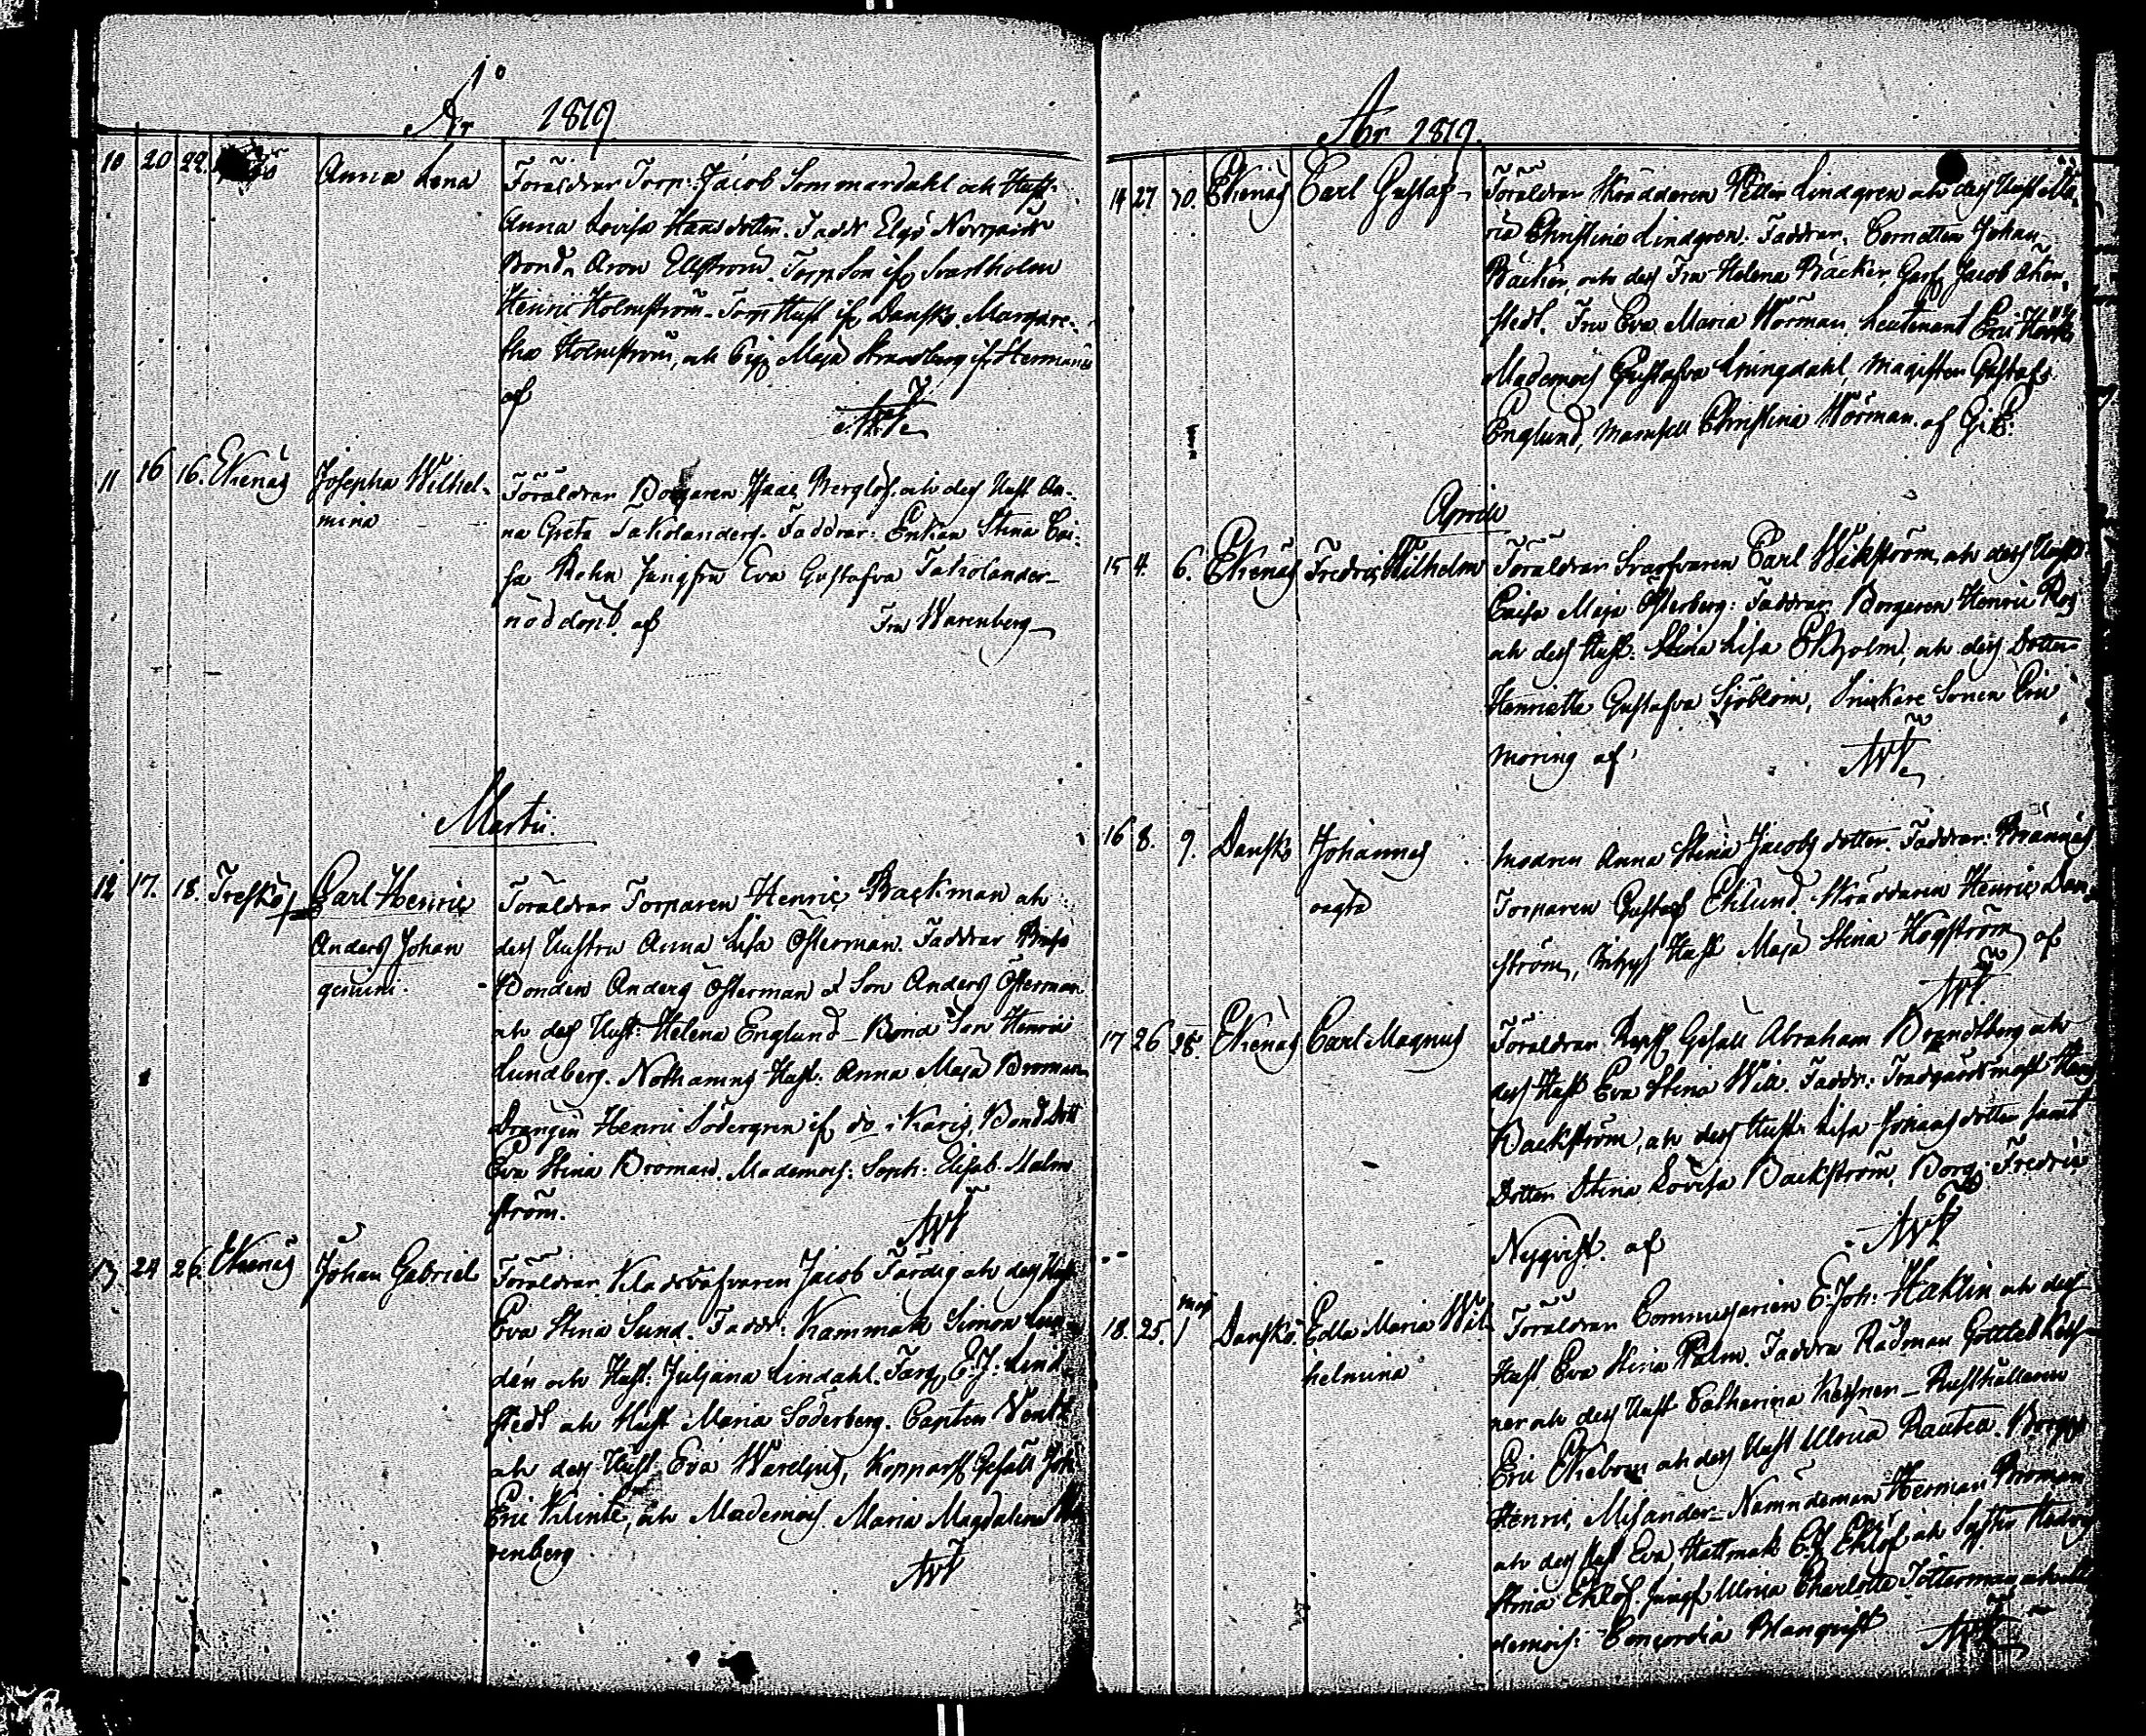 År 1819
10 20 22. Anna Lena Föräldrar Torp: Jacob Sommardahl och Hust:
Anna Lovisa Hans dotter. Fadd: Elgö Norrgård
Bond. Aron Ellström. Torp Son if Svartholm
Henric Holmström. Torp Hust if Danskö Margare-
tha Holmström, och Pig Maja Strandberg if Hermans
af
11 16 16. Ekenäs Josepha Wilhel- Föräldrar Borgaren Isaac Berglöf och des Hust An-
mina na Greta Takolander. Faddrar: Enkan Stina Cai-
sa Rehn Jungfru Eva Gustafva Takolander
nöddöpt af Fru Warenberg
Martii.
12 17. 18. Treskö Carl Henric Föräldrar Torparen Henric Backman och
Anders Johan des Hustru Anna Lisa Österman. Faddrar
gemini. Bonden Anders Österman d Son Anders Österman
och des Hust: Helena Englund - Bond Son Henric
Lundberg. Hust. Anna Maja Broman
Drängen Henric Södergren if do i Karis, Bond Dott
Eva Stina Broman. Mademois: Soph: Elisab. Malm
ström.
13 24 26. Ekenäs Johan Gabriel Föräldrar Klädsväfvaren Jacob Färdig och des Hust
Eva Stina Sund. Fadd: Kammak Simon Lin
dén och Hust: Juljana Lindahl. Färg E.J: Lind
stedt och Hust Maria Söderberg. Capten
och des Hust Eva Wardjus, Kopparsl Gesäll Joh:
Eric Klinte, och Mademois Maria Magdalena Wa
renberg
År 1819.
14 27 30. Ekenäs Carl Gustaf Föräldrar Skräddaren Petter Lindgren och des Hust Ma-
ria Christina Lindgren. Faddrar, Cornetten Johan
Bäcker, och des Fru Helena Bäcker, Garf Jacob Åken-
stedt. Fru Eva Maria Wörman, Leutenant Eric
Mademois Gustafva Ljungdahl, Magister Gustaf
Englund, Mamsell Christina Wörman. af
Aprill
15 4. 6. Ekenäs Fredric Wilhelm Föräldrar Svarfvaren Carl Wikström och des Hust
Caisa Maja Österberg: Faddrar: Borgaren Henric Ros
och des Hust: Stina Lisa Ekholm, och des Dotter
Henrietta Gustafva Sjöblom, Snickare Sonen Eric
Moring af
16 8. 9. Danskö Johannes Modren Anna Stina Jacobs dotter. Faddrar:
oägta Torparen Gustaf Eklund Skräddaren Henric Dan
ström, Hust Maja Stina Högström af
17 26 28. Ekenäs Carl Magnus Föräldrar Reps Gesäll Abraham Brandtberg och
des Hust Eva Stina Will. Fadd: Trädgårdsmäst Hans
Backström, och des Hust: Lisa Johans dotter samt
Dotter Stina Lovisa Backström, Borg: Fredric
Nyqvist. af
18. 25. Maj 1 Danskö. Edla Maria Wil- Föräldrar Commissarien E: Joh: Haklin och des
helmina Hust Eva Stina Palm. Faddra Rådman Gottlieb Kess-
ner och des Hust Catharina Kessner - Rusthållaren
Eric Ekebom och des Hust Ulrica Rautea. Borg
Henric Misander - Nämndeman Herman Broman
och des Hust Eva, Hattmak C.G Eklöf och Syster Hedvig
Stina Eklöf. Jungf Ulrica Charlotta Totterman och Ma
demois: Concordia Blanqvist